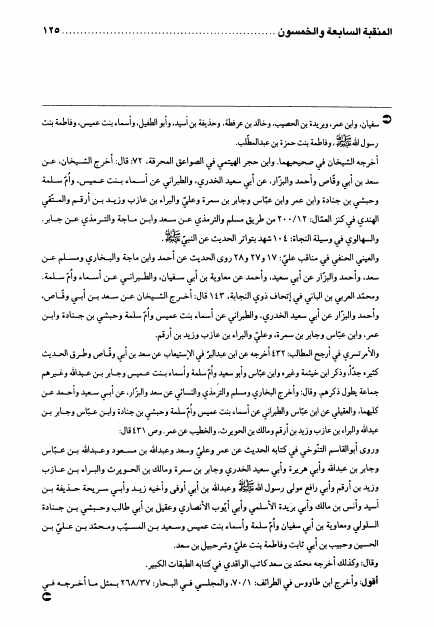 المنقبة السابعة والخمسون ........................................................ ١٢٥
سفيان، وابن عمر، وبريدة بن الحصيب، وخالد بن عرفطة، وحذيفة بن أسيد، وأبو الطفيل، وأسماء بنت عميس، وفاطمة بنت
رسول الله ﷺ، وفاطمة بنت حمزة بن عبدالمطّلب.
أخرجه الشيخان في صحيحيهما، وابن حجر الهيتمي في الصواعق المحرقة، ٧٢: قال: أخرج الشيخان، عن
سعد بن أبي وقّاص وأحمد والبزّار، عن أبي سعيد الخدري، والطبراني عن أسماء بنت عميس، وأمّ سلمة
وحبشي بن جنادة وابن عمر وابن عبّاس وجابر بن سمرة وعليّ والبراء بن عازب وزيد بن أرقم والمتّقي
الهندي في كنز العمّال: ٢٠٠/١٢ من طريق مسلم والترمذي عن سعد وابن ماجة والترمذي عن جابر.
والسهالوي في وسيلة النجاة: ١٠٤ شهد بتواتر الحديث عن النبيّ ﷺ.
والعيني الحنفي في مناقب عليّ: ١٧ و٢٧ و٢٨ روى الحديث عن أحمد وابن ماجة والبخاري ومسلم عن
سعد، وأحمد والبزّار عن أبي سعيد، وأحمد عن معاوية بن أبي سفيان، والطبراني عن أسماء وأمّ سلمة.
ومحمّد العربي بن التباني في إتحاف ذوي النجابة، ١٤٣ قال: أخرج الشيخان عن سعد بن أبي وقّاص،
وأحمد والبزّار عن أبي سعيد الخدري، والطبراني عن أسماء بنت عميس وأمّ سلمة وحبشي بن جنادة وابن
عمر، وابن عبّاس وجابر بن سمرة، وعليّ والبراء بن عازب وزيد بن أرقم.
والأمرتسري في أرجح المطالب: ٤٣٢ أخرجه عن ابن عبدالبرّ في الإستيعاب عن سعد بن أبي وقّاص وطرق الحديث
كثيرة جدّاً، وذكر ابن خيثمة وغيره وابن عبّاس وأبو سعيد وأمّ سلمة وأسماء بنت عميس وجابر بن عبدالله وغيرهم
جماعة يطول ذكرهم. وقال: وأخرج البخاري ومسلم والترمذي والنسائي عن سعد والبزّار، عن أبي سعيد وأحمد عن
كليهما، والعقيلي عن ابن عبّاس والطبراني عن أسماء بنت عميس وأمّ سلمة وحبشي بن جنادة وابن عبّاس وجابر بن
عبدالله والبراء بن عازب وزيد بن أرقم ومالك بن الحويرث، والخطيب عن عمر. وص ٤٣١ قال:
وروى أبوالقاسم التنّوخي في كتابه الحديث عن عمر وعليّ وسعد وعبدالله بن مسعود وعبدالله بن عبّاس
وجابر بن عبدالله وأبي هريرة وأبي سعيد الخدري وجابر بن سمرة ومالك بن الحويرث والبراء بن عازب
وزيد بن أرقم وأبي رافع مولى رسول الله ﷺ وعبدالله بن أبي أوفى وأخيه زيد وأبي سريحة حذيفة بن
أسيد وأنس بن مالك وأبي بريدة الأسلمي وأبي أيّوب الأنصاري وعقيل بن أبي طالب وحبشي بن جنادة
السلولي ومعاوية بن أبي سفيان وأمّ سلمة وأسماء بنت عميس وسعيد بن المسيّب ومحمّد بن عليّ بن
الحسين وحبيب بن أبي ثابت وفاطمة بنت عليّ وشرحبيل بن سعد.
وقال: وكذلك أخرجه محمّد بن سعد كاتب الواقدي في كتابه الطبقات الكبير.
أقول: وأخرج ابن طاووس في الطرائف: ٧٠/١، والمجلسي في البحار: ٢٦٨/٣٧ بمثل ما أخرجه في